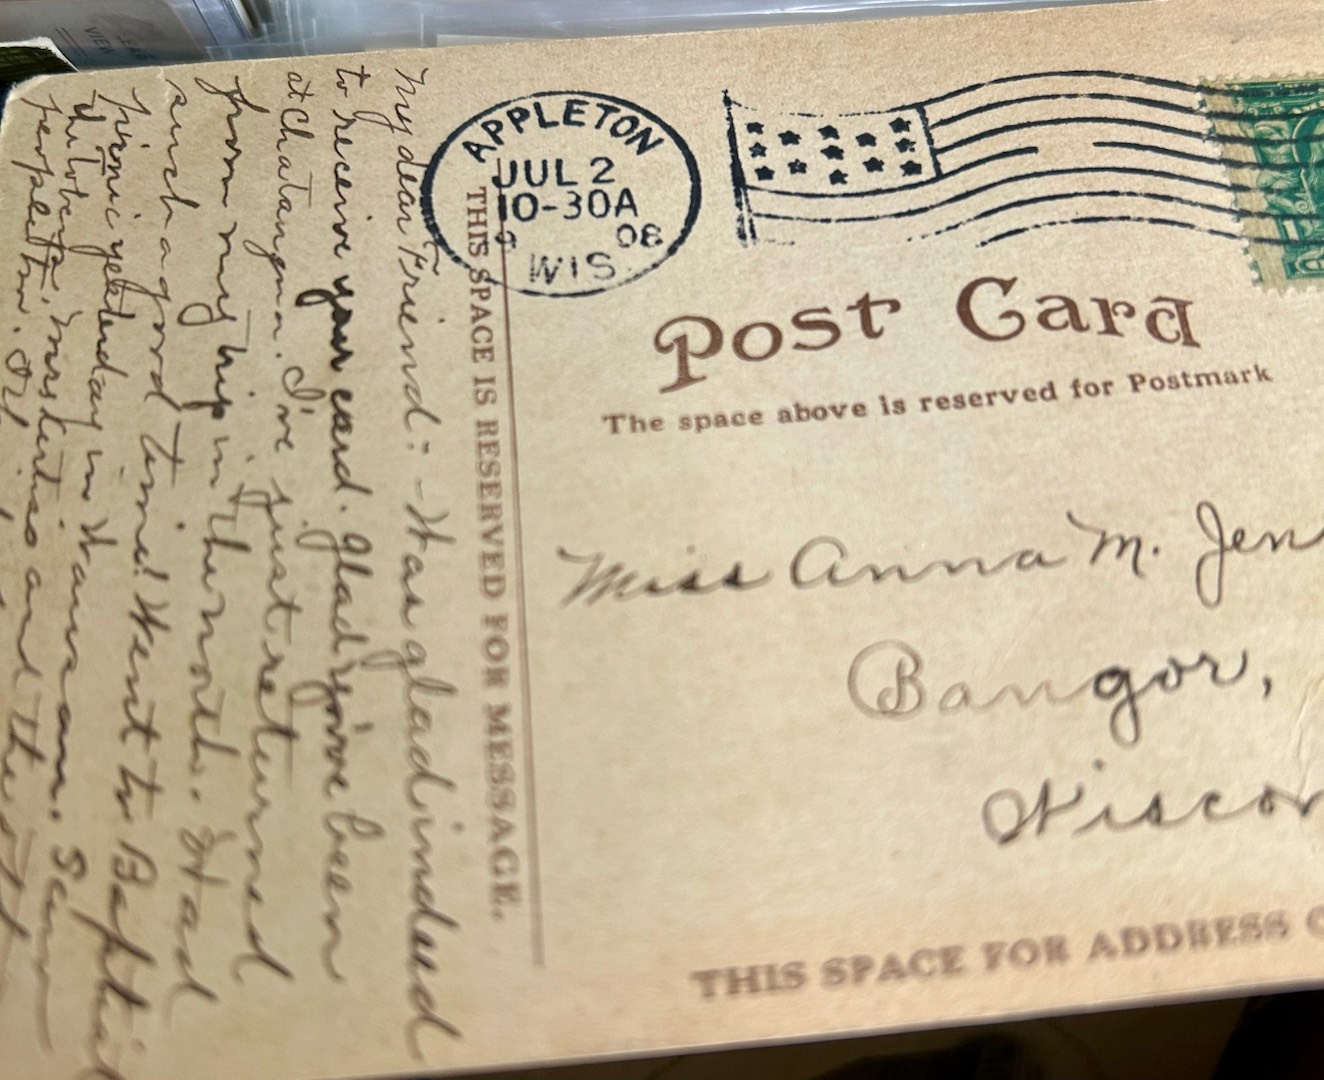 APPLETON
JUL 2
10-30A
08
WIS
Post Card
The space above is reserved for Postmark
THIS SPACE IS RESERVED FOR MESSAGE.
Miss Anna M. Jen
Bangor,
Wiscon
THIS SPACE FOR ADDRESS O
My dear Friend:- Was glad indeed
to receive your card. Glad you've been
at Chatauqua. I've just returned
from my trip in the north. Had
such a good time! Went to Baptist
picnic yesterday in Waussau. Seen
the Mrs and the
people
VIEW